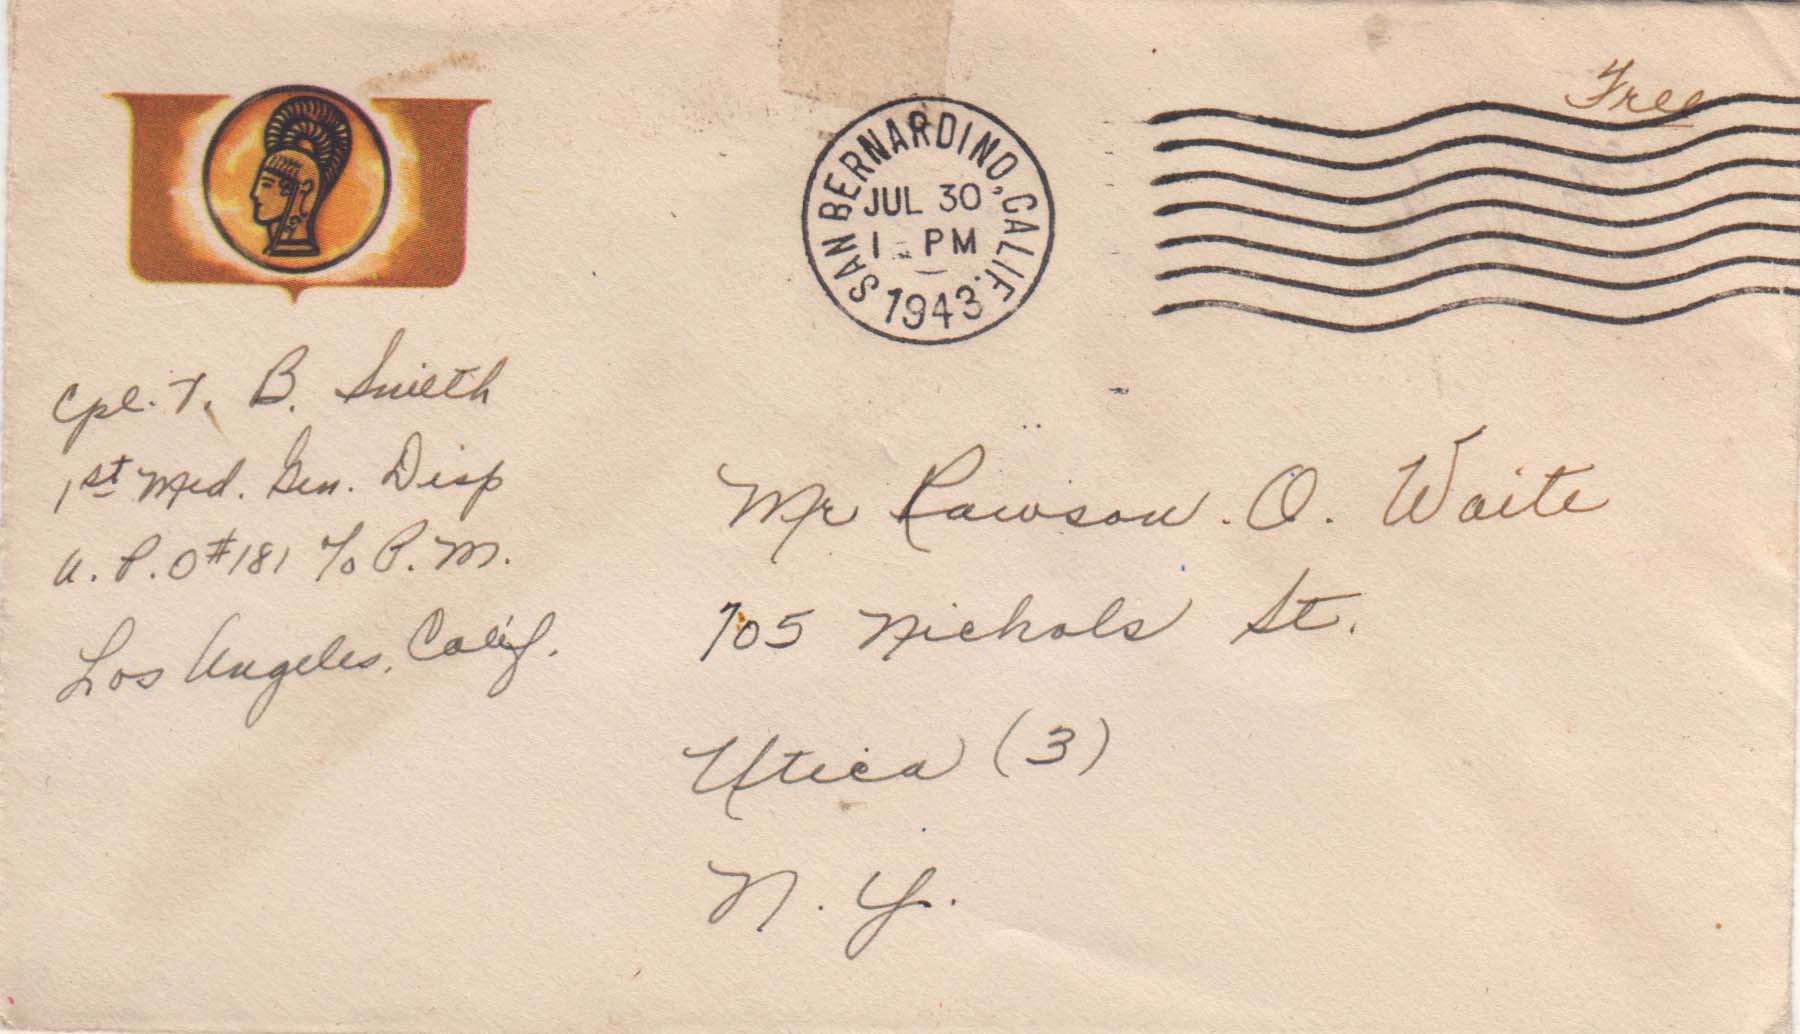 Free
SAN BERNARDINO, CALIF.
JUL 30
1 - PM
1943
Cpl. T. B. Smith
1st Med. Gen. Disp
A. P. O #181 %o P. M.
Los Angeles, Calif.
Mr Rawson. O. Waite
705 Nichols St.
Utica (3)
N. Y.